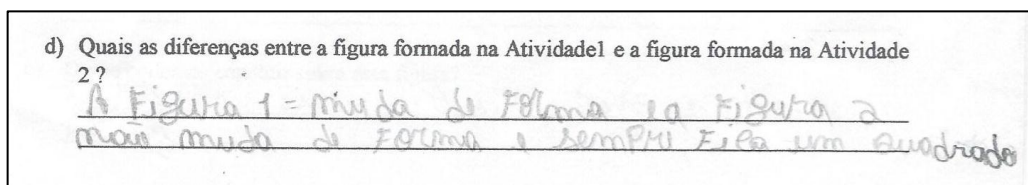 d) Quais as diferenças entre a figura formada na Atividade1 e a figura formada na Atividade
2 ?
A Figura 1 = muda de Forma e a Figura 2
mao muda de Forma e sempre Fica um quadrado